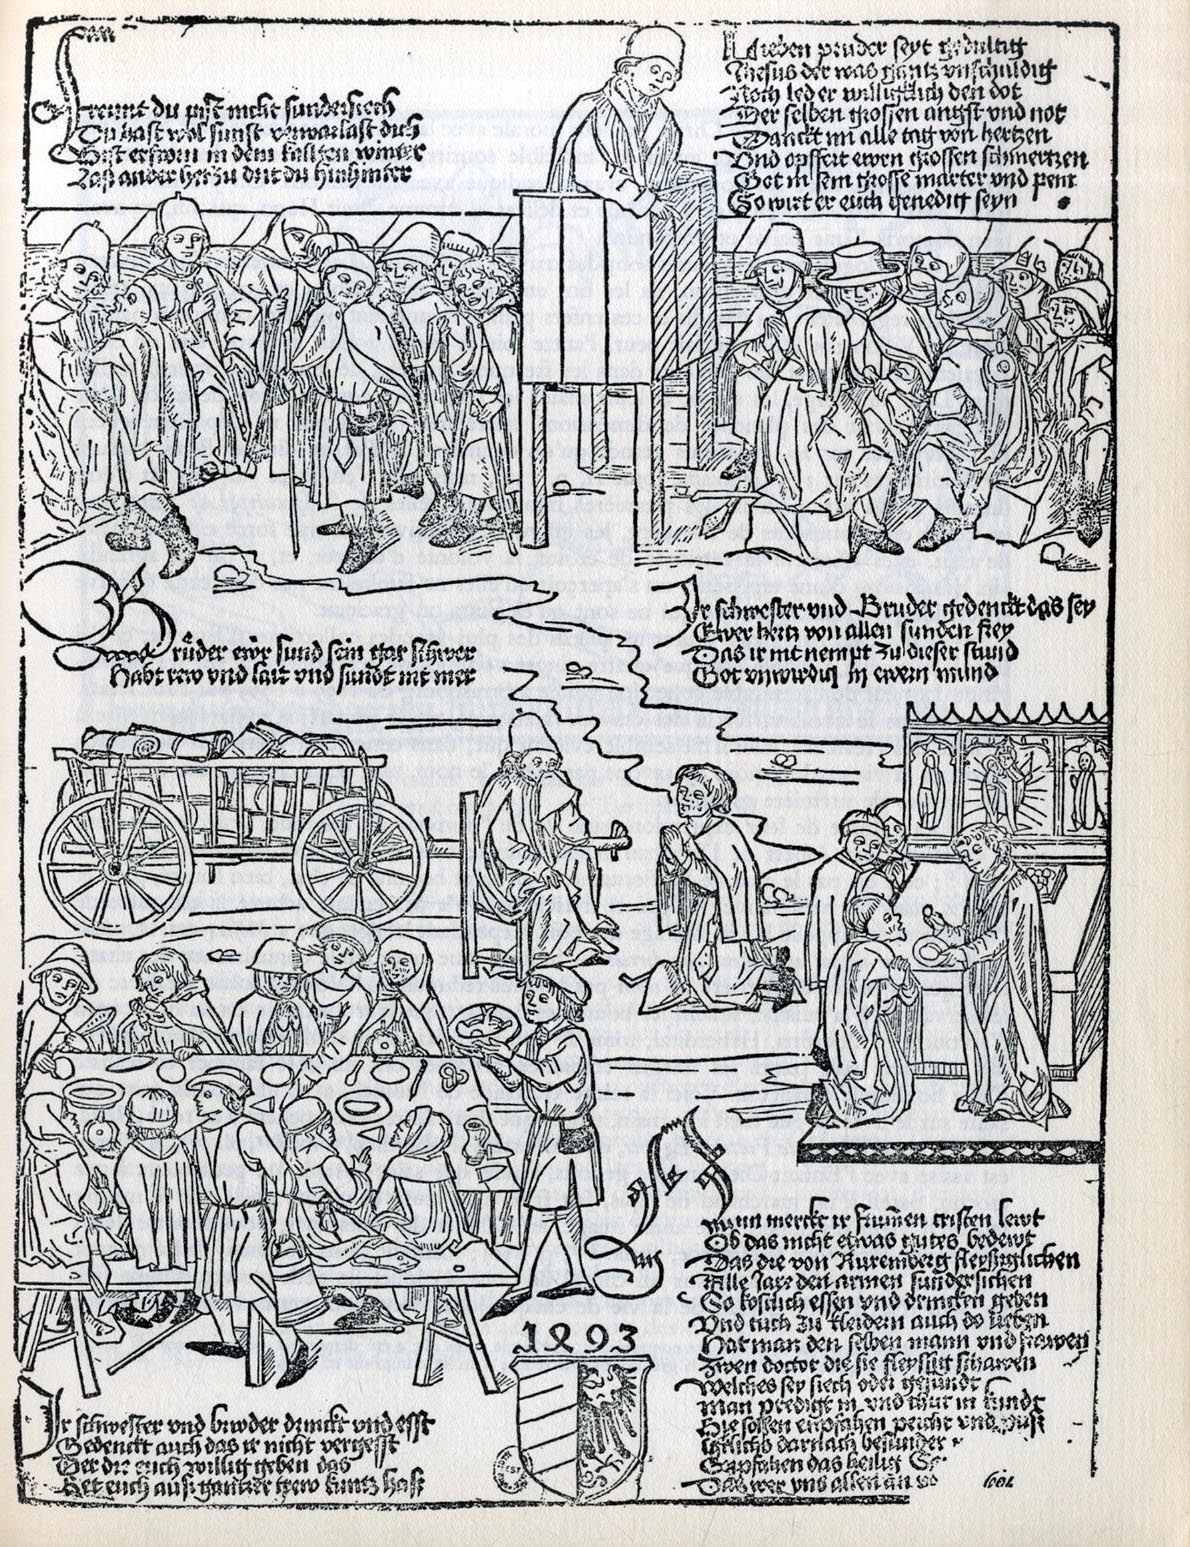 Freunt du pist nicht sundersiech
Du hast wol sunst verwarlast dich
Hast erfrorn in dem kallten winter
Laß ander herzu drit du hinhinter
Lieben pruder seyt gedultig
Jhesus der was gantz vnschuldig
Noch led er willigklich den dot
Der selben grossen angst vnd not
Danckt im alle tag von hertzen
Vnd opffert ewrn grossen schmertzen
Got in sein grosse marter vnd pein
So wirt er euch genedig seyn
Ir schwester vnd Bruder gedenckt das sey
Ewer hertz von allen sunden frey
Das ir mt nempt zu dieser stund
Got vnwirdig in ewern mund
Bruder ewr sund sein gar schwer
Habt rew vnd lait vnd sundt nit mer
Nun merckt ir frumen cristen lewt
Ob das nicht etwas gutes bedewt
Das die von Nuremberg fleyssiglichen
Alle Jar den armen sundersichen
So kostlich essen vnd drincken geben
Vnd tuch zu kleidern auch do neben
Hat man den selben mann vnd frawen
Zwen doctor die sie fleyssig schawen
Welches sey siech oder gesundt
Man predigt in vnd thut in kundt
Sie sollen enpfahen peicht vnd puß
darnach besunder
Enpfahen das heilig
Das wer vns allen
1493
Ir schwester vnd bruder drinckt vnd esst
Gedenckt auch das ir nicht vergesst
Der die euch willig geben das
Het euch auß gantzer trew